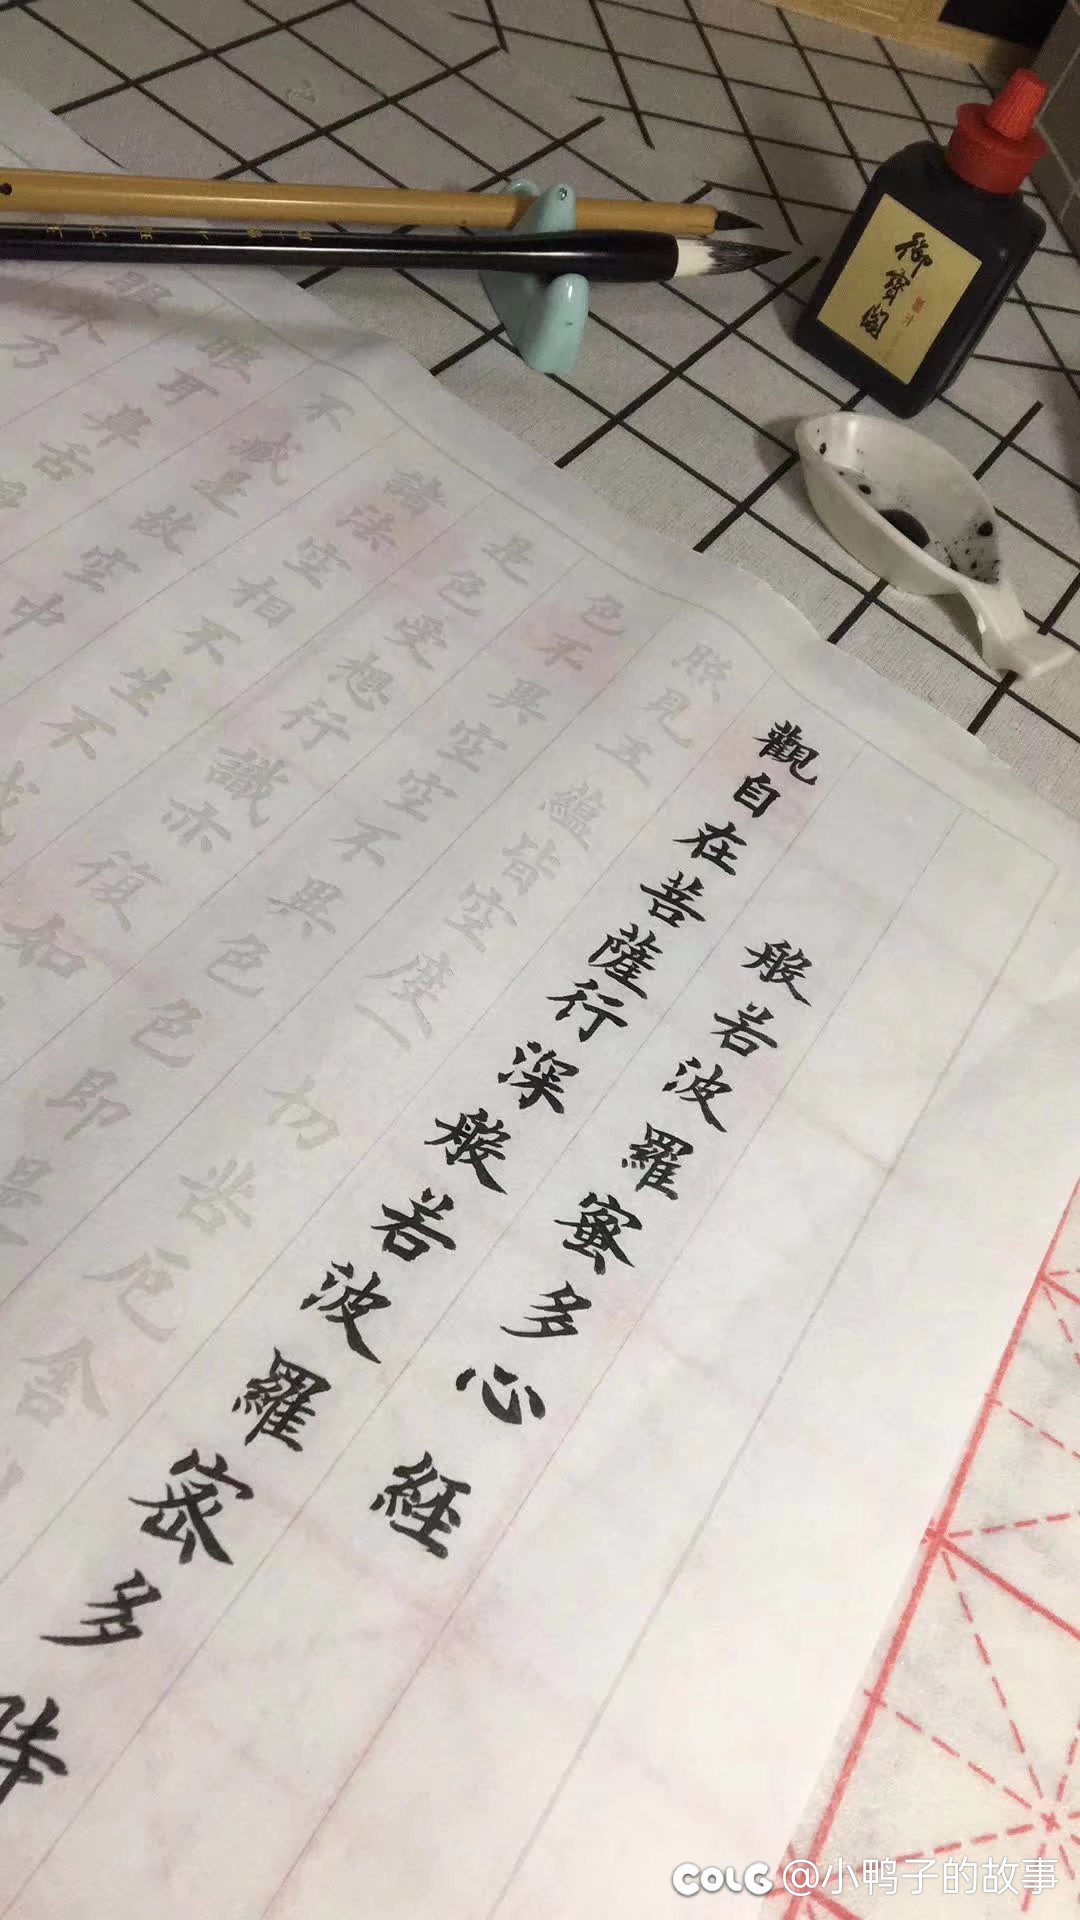 般若波羅蜜多心經
觀自在菩薩行深般若波羅密多時
照見五蘊皆空度一切苦厄舍
色不異空空不異色色即是
是色受想行識亦復如
諸法空相不生不滅
不減是故空中
眼耳鼻舌
眼界乃
御寶閣
墨汁
COLG @小鸭子的故事